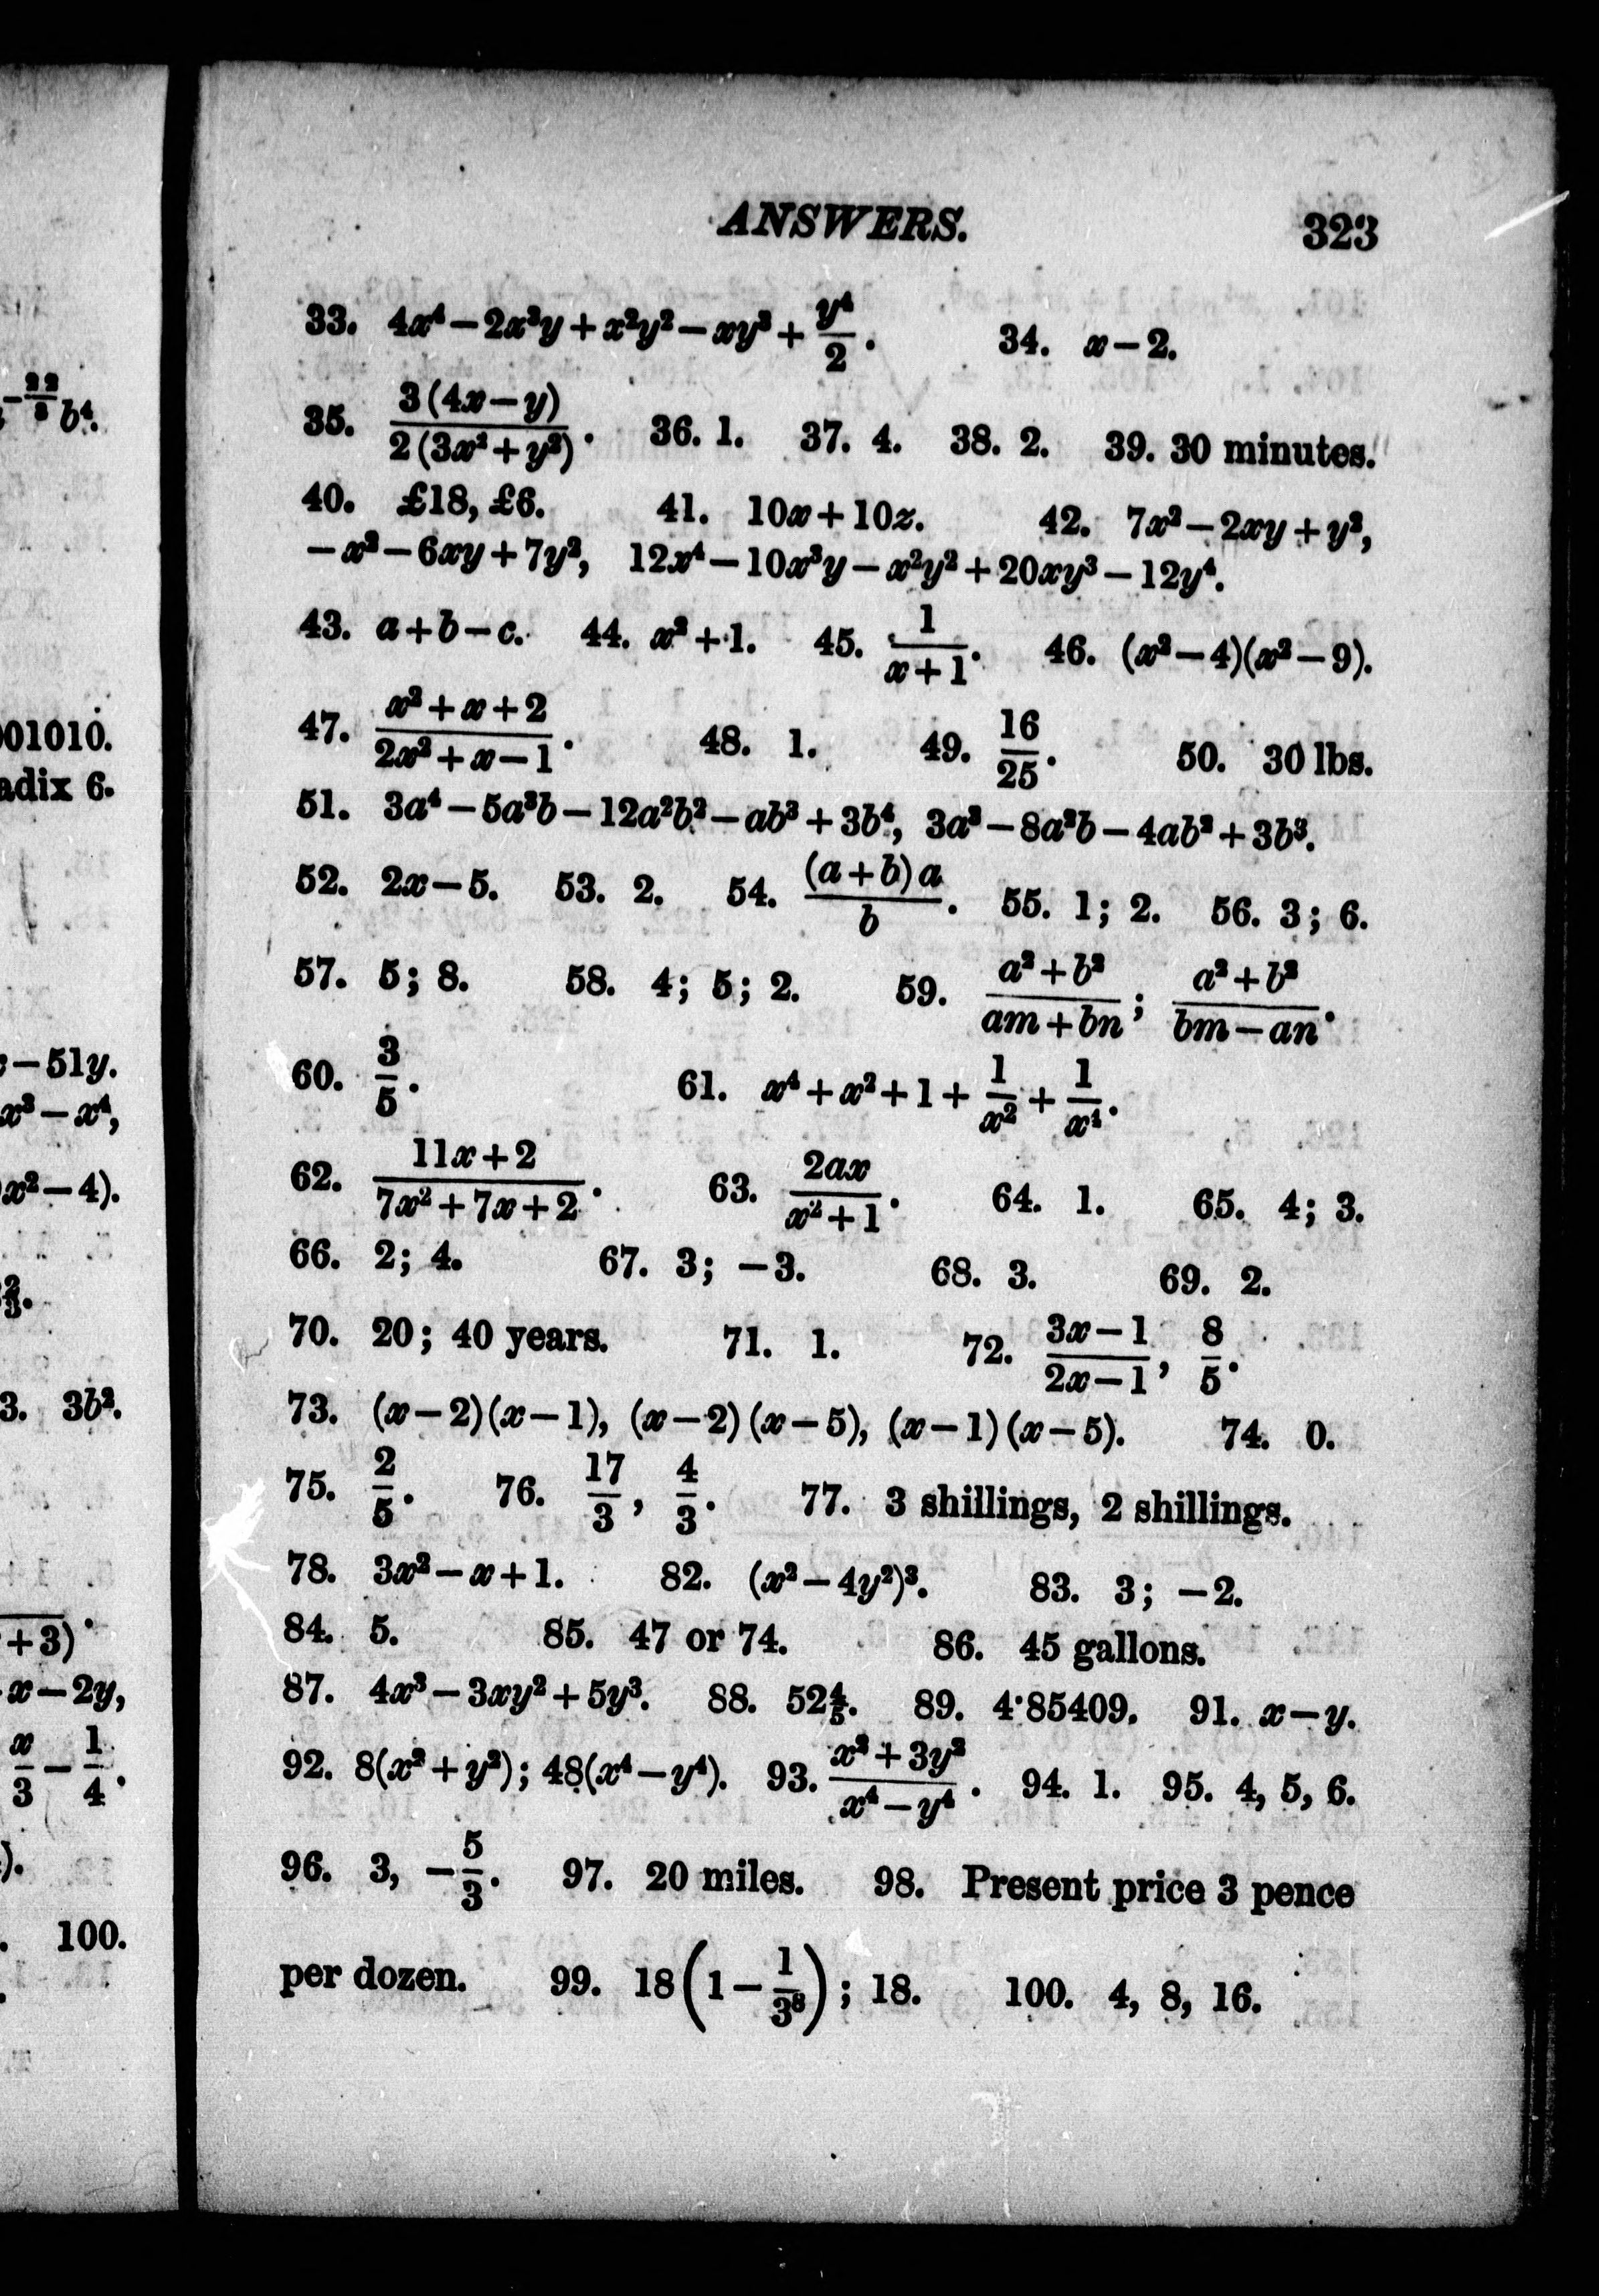 ANSWERS. 323
33. 4x⁴ − 2x³y + x²y² − xy³ + y⁴/2. 34. x − 2.
35. 3(4x − y)/2(3x² + y²). 36. 1. 37. 4. 38. 2. 39. 30 minutes.
40. £18, £6. 41. 10x + 10z. 42. 7x² − 2xy + y²,
− x² − 6xy + 7y², 12x⁴ − 10x³y − x²y² + 20xy³ − 12y⁴.
43. a + b − c. 44. x² + 1. 45. 1/(x + 1). 46. (x² − 4)(x² − 9).
47. (x² + x + 2)/(2x² + x − 1). 48. 1. 49. 16/25. 50. 30 lbs.
51. 3a⁴ − 5a³b − 12a²b² − ab³ + 3b⁴, 3a³ − 8a²b − 4ab² + 3b³.
52. 2x − 5. 53. 2. 54. (a + b)a/b. 55. 1; 2. 56. 3; 6.
57. 5; 8. 58. 4; 5; 2. 59. (a² + b²)/(am + bn); (a² + b²)/(bm − an).
60. 3/5. 61. x⁴ + x² + 1 + 1/x² + 1/x⁴.
62. (11x + 2)/(7x² + 7x + 2). 63. 2ax/(x² + 1). 64. 1. 65. 4; 3.
66. 2; 4. 67. 3; −3. 68. 3. 69. 2.
70. 20; 40 years. 71. 1. 72. (3x − 1)/(2x − 1), 8/5.
73. (x − 2)(x − 1), (x − 2)(x − 5), (x − 1)(x − 5). 74. 0.
75. 2/5. 76. 17/3, 4/3. 77. 3 shillings, 2 shillings.
78. 3x² − x + 1. 82. (x² − 4y²)³. 83. 3; −2.
84. 5. 85. 47 or 74. 86. 45 gallons.
87. 4x³ − 3xy² + 5y³. 88. 52⅘. 89. 4·85409. 91. x − y.
92. 8(x² + y²); 48(x⁴ − y⁴). 93. (x² + 3y²)/(x⁴ − y⁴). 94. 1. 95. 4, 5, 6.
96. 3, −5/3. 97. 20 miles. 98. Present price 3 pence
per dozen. 99. 18(1 − 1/3⁸); 18. 100. 4, 8, 16.
b⁴.
001010.
adix 6.
− 51y.
x³ − x⁴,
x² − 4).
3. 3b².
+ 3)
x − 2y,
x/3 − 1/4.
).
100.